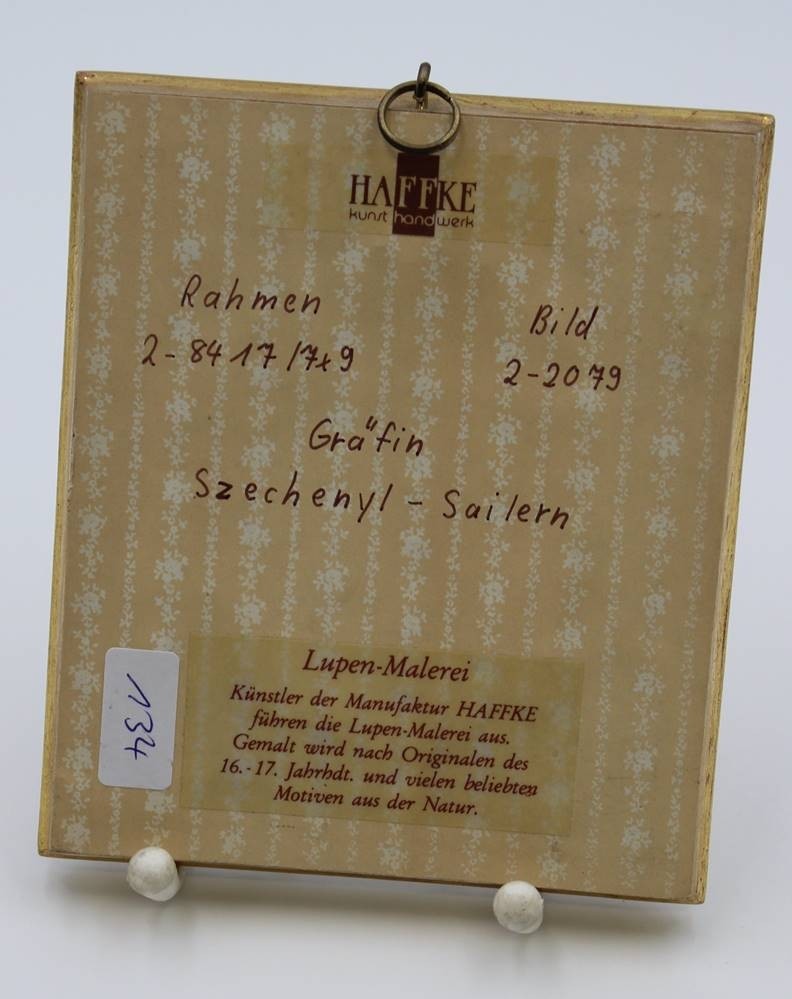 HAFFKE
kunst handwerk
Rahmen
2-8417/7x9
Bild
2-2079
Gräfin
Szechenyl - Sailern
Lupen-Malerei
Künstler der Manufaktur HAFFKE
führen die Lupen-Malerei aus.
Gemalt wird nach Originalen des
16.-17. Jahrhdt. und vielen beliebten
Motiven aus der Natur.
134